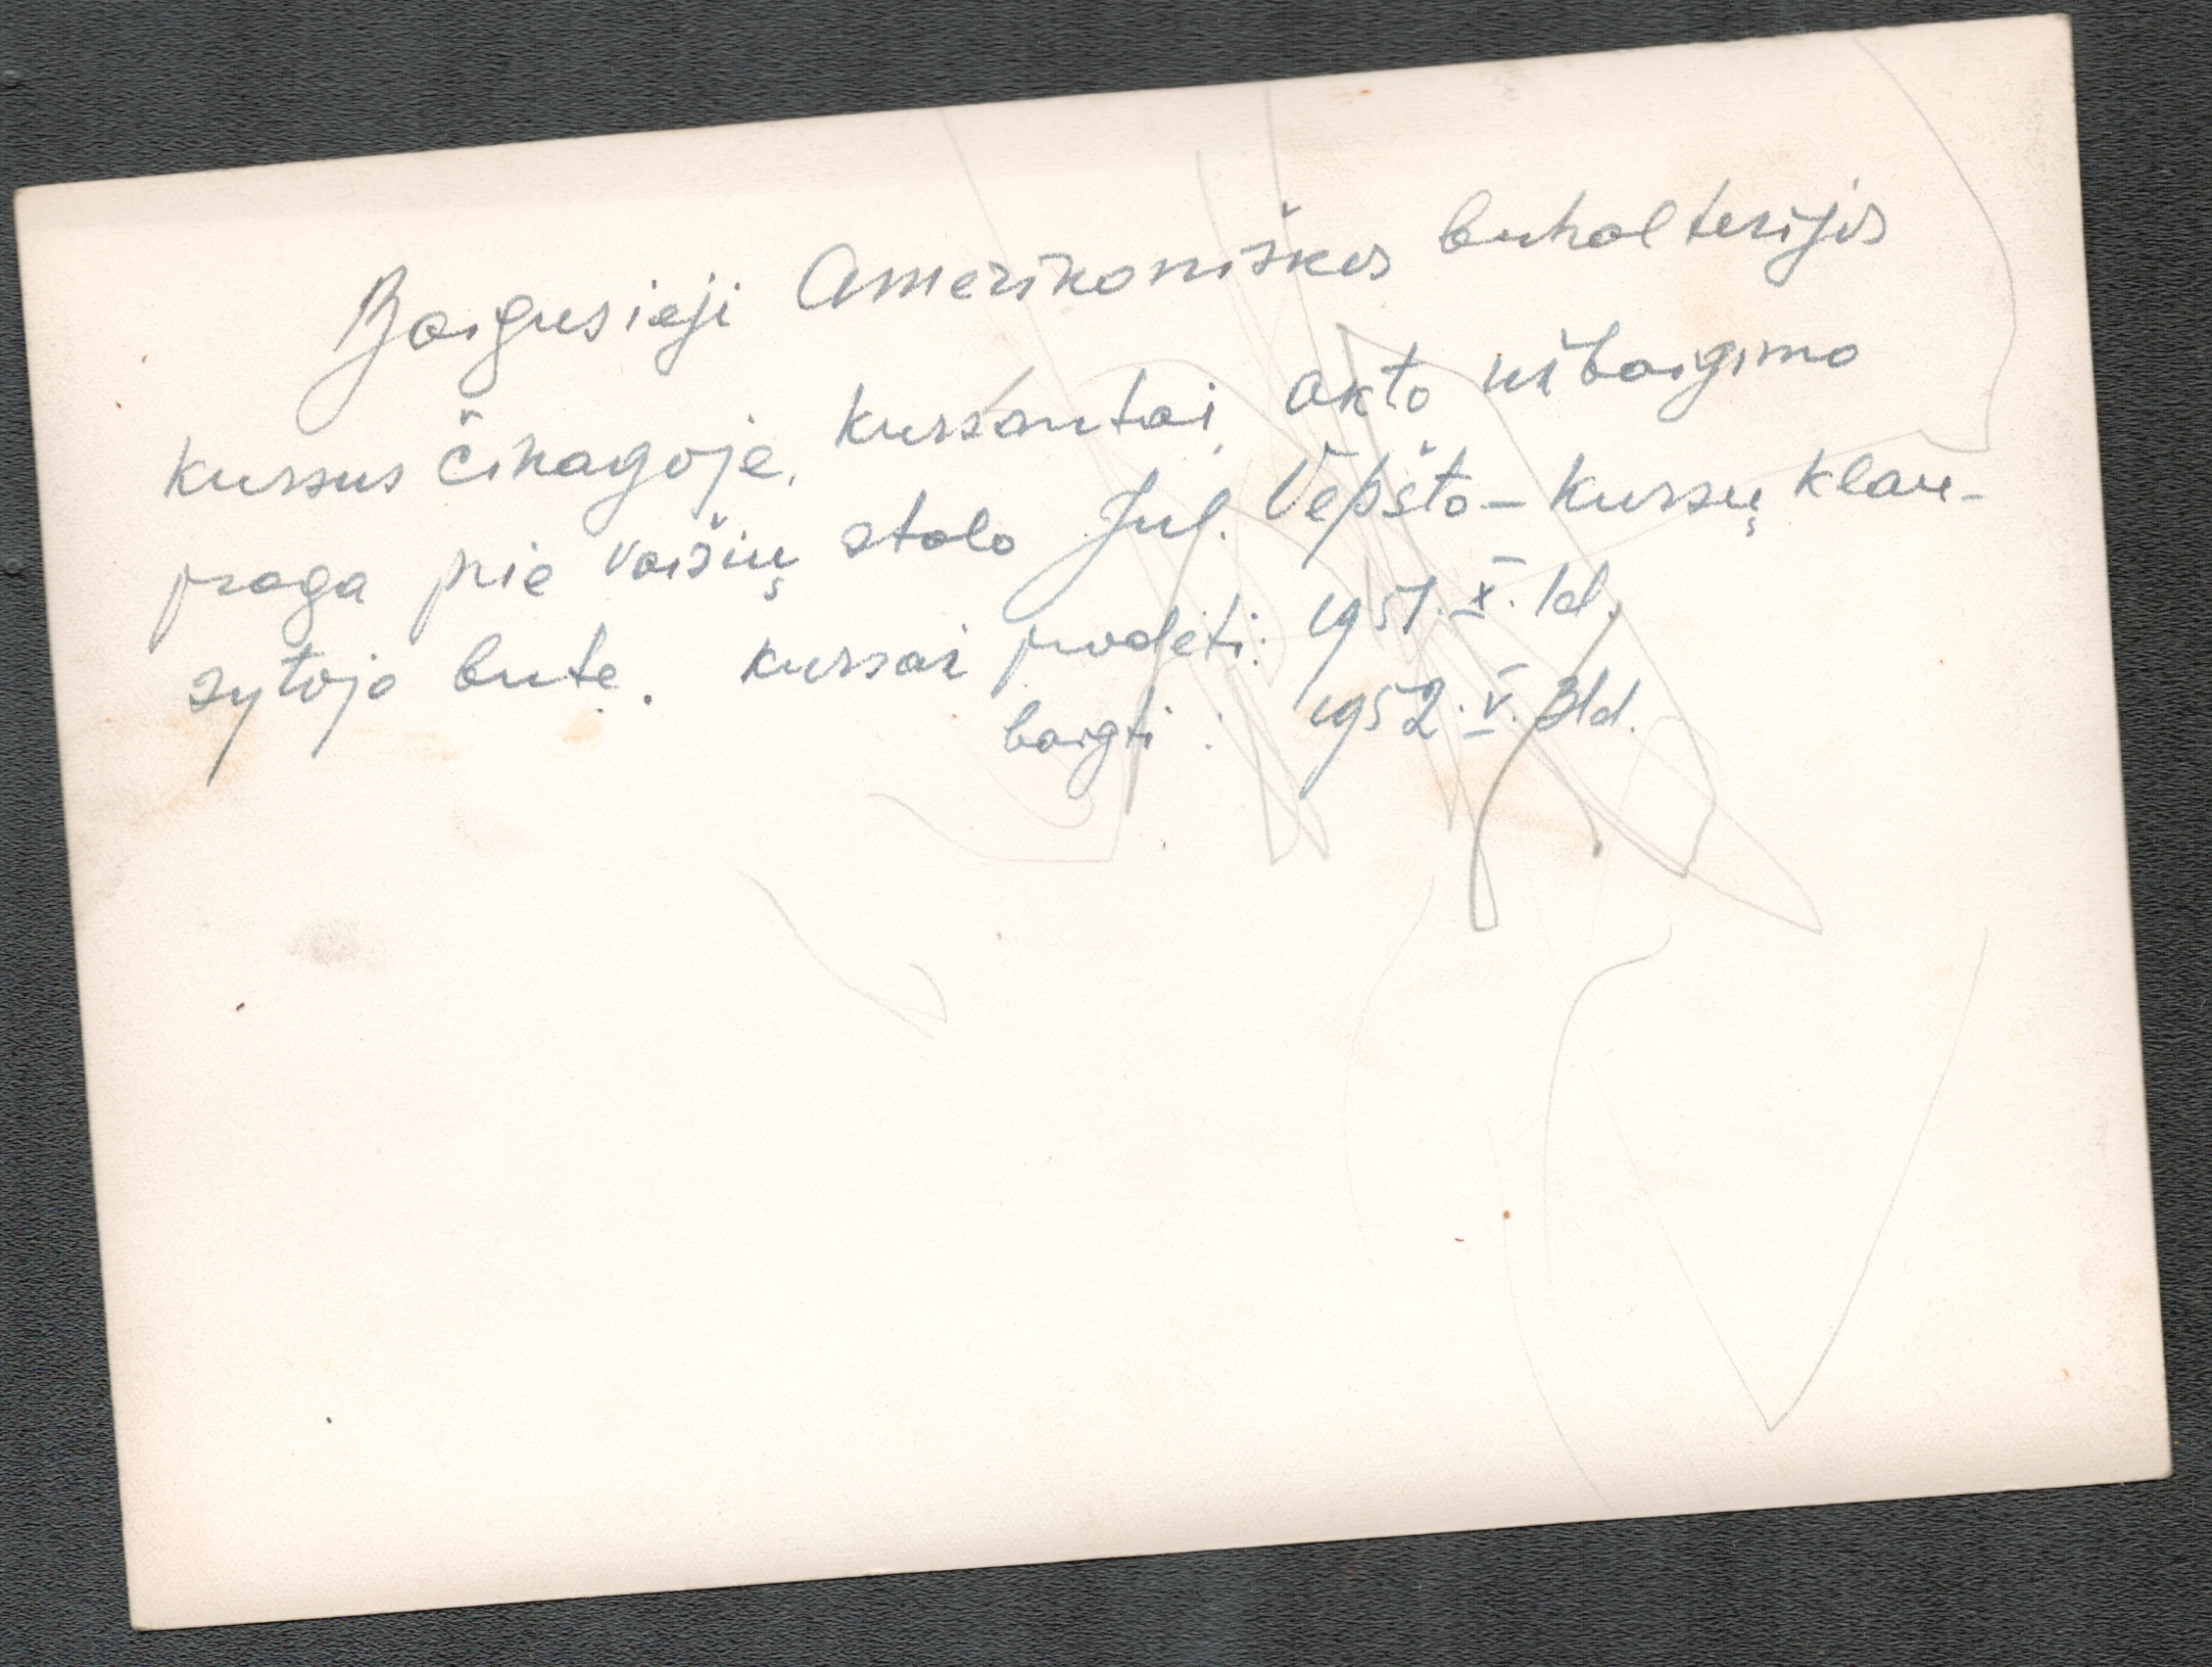 Baigusieji Amerikoniškos buhalterijos
kursus Čikagoje, kursantai, akto užbaigimo
proga prie vaišių stalo Jul. Vepšto – kursų klau-
sytojo bute. Kursai pradėti: 1951. X. 1d.
baigti: 1952. V. 31d.